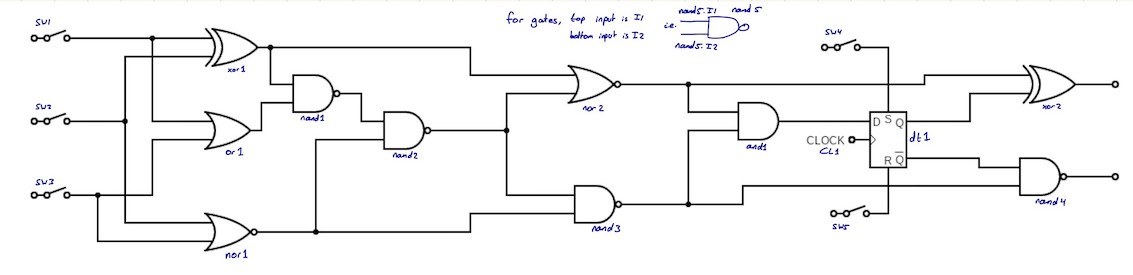 for gates, top input is I1
bottom input is I2
i.e.
nand5.I1
nand 5
nand5.I2
SW1
SW2
SW3
SW4
SW5
xor1
or1
nor1
nand1
nand2
nor2
nand3
and1
CLOCK
CL1
D S Q
R Q̅
dt1
xor2
nand4